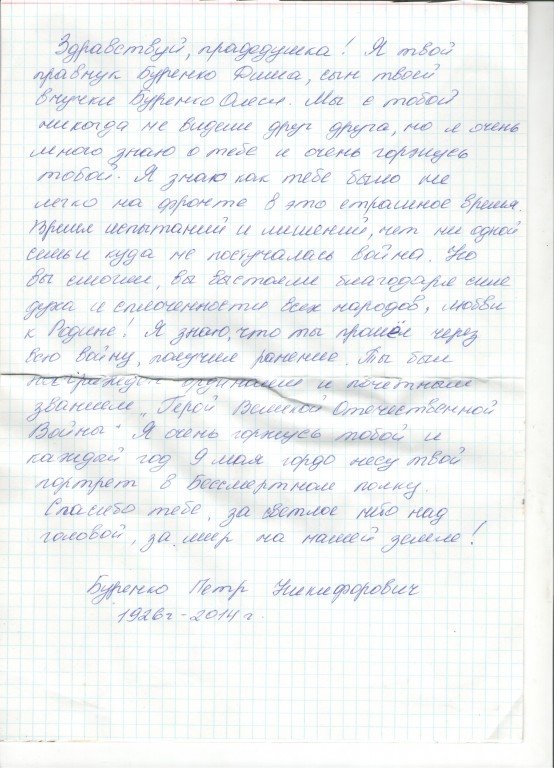 Здравствуй, прадедушка! Я твой
правнук Буренко Дима, сын твоей
внучки Буренко Олеси. Мы с тобой
никогда не видели друг друга, но я очень
много знаю о тебе и очень горжусь
тобой. Я знаю как тебе было не
легко на фронте в это страшное время.
Время испытаний и лишений, нет ни одной
семьи куда не постучалась война. Но
вы смогли, вы выстояли благодаря силе
духа и сплоченности всех народов, любви
к Родине! Я знаю, что ты прошёл через
всю войну, получил ранение. Ты был
награждён орденами и почетным
званием „Герой Великой Отечественной
Войны“ Я очень горжусь тобой и
каждый год 9 мая гордо несу твой
портрет в Бессмертном полку.
Спасибо тебе, за светлое небо над
головой, за мир на нашей земле!
Буренко Петр Никифорович
1926г-2014г.